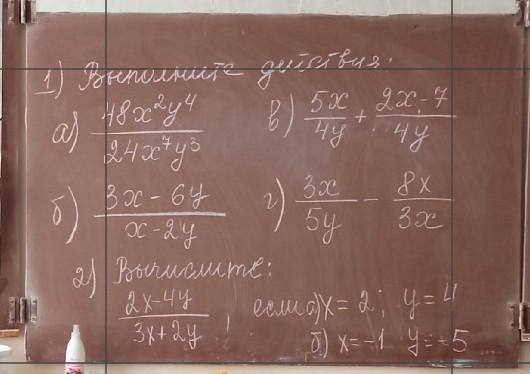 1) Выполните действия:
а) 48x²y⁴ / 24x⁷y³
в) 5x / 4y + 2x-7 / 4y
б) 3x - 6y / x - 2y
г) 3x / 5y - 8x / 3x
2) Вычислите:
2x-4y / 3x+2y , если а) x = 2; y = 4
б) x = -1 y = -5